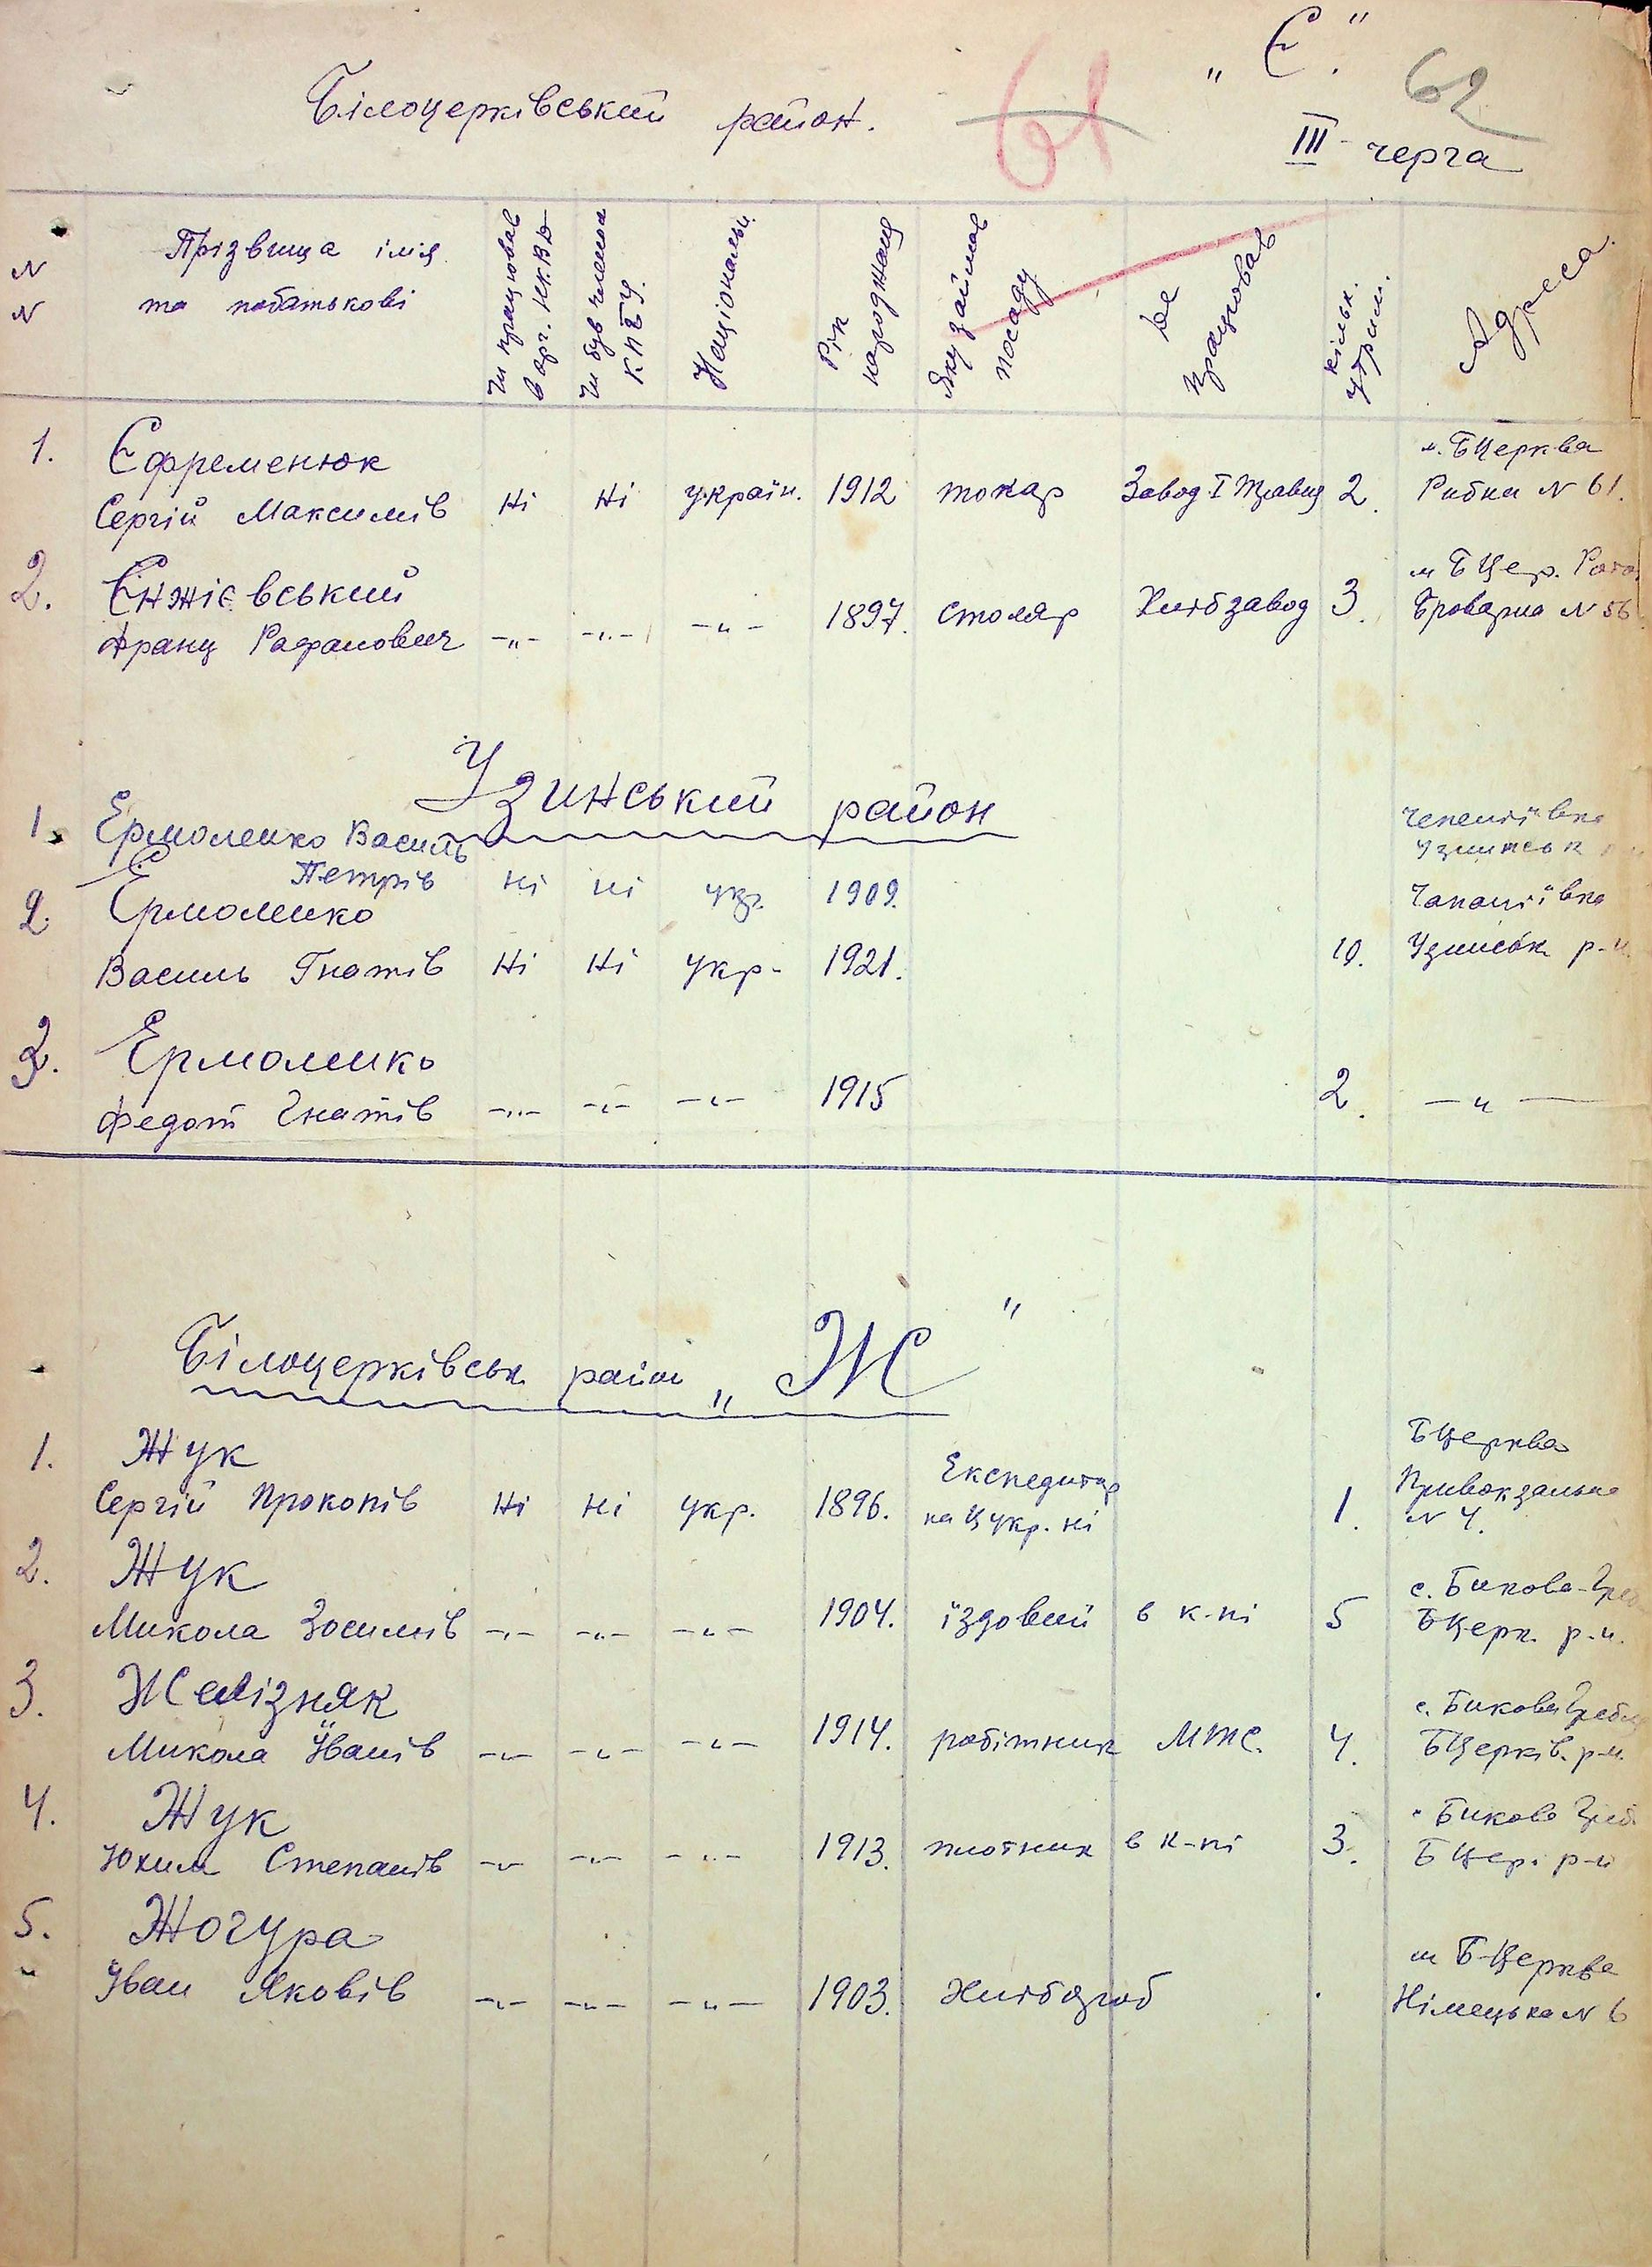 „Є."
61
62
Білоцерківський район.
III черга
N N
Прізвища імія та побатькові
Чи працював в орг. НКВД
Чи був членом КП(б)У.
Національн.
Рік народження
Яку займав посаду
Де працював
Кільк. утрим.
Адреса
1. Єфременюк м. БЦерква
Сергій Максимів Ні Ні україн. 1912 токар Завод І Травня 2. Рибна N 61.
2. Єнжієвський м БЦер.
Франц Рафалович -„- -„- -„- 1897. столяр Хлібзавод 3. Броварна N 56
Узинський район
1. Ермоленко Василь
Петрів ні ні укр. 1909.
2. Ермоленко
Василь Гнатів Ні Ні укр- 1921. 10. Узинськ р-н.
3. Ермоленко
Федот Гнатів -„- -„- -„- 1915 2. -„-
Білоцерківськ район „Ж"
1. Жук БЦерква
Експедитор Привокзальна
Сергій Прокопів Ні ні укр. 1896. на Цукр. ні 1. N 4.
2. Жук с. Бикова-Греб
Микола Зосимів -„- -„- -„- 1904. їздовий в к-пі 5 БЦерк. р-н.
3. Желізняк с. Бикова Гребля
Микола Іванів -„- -„- -„- 1914. робітник МТС. 4. БЦерків. р-н.
4. Жук Бикова Греб
Юхим Степанів -„- -„- -„- 1913. плотник в к-пі 3. БЦер. р-н
5. Жогура м Б-Церква
Іван Яковів -„- -„- -„- 1903. Хлібороб Німецька N 6